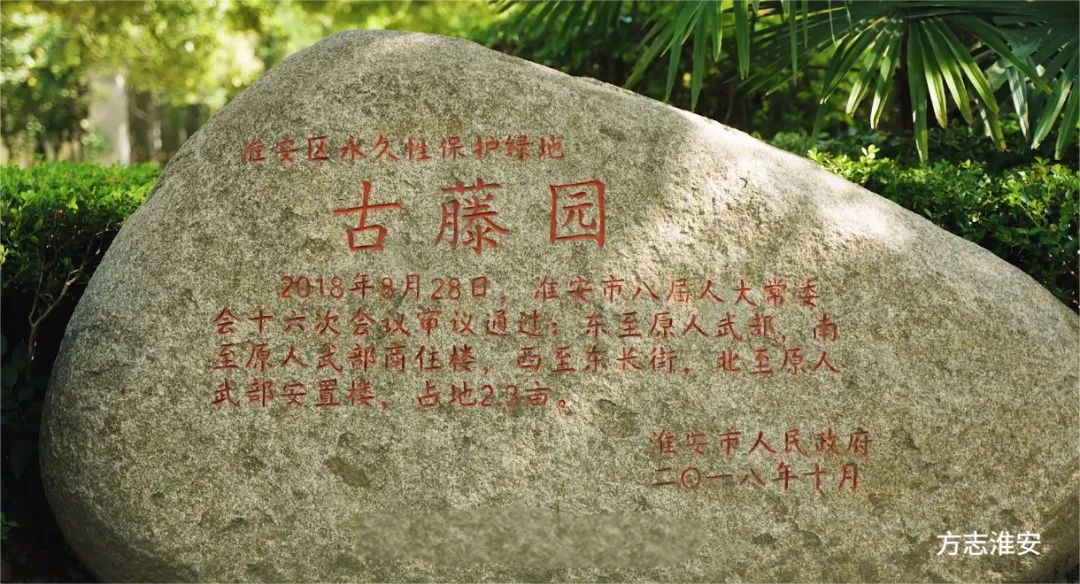 淮安区永久性保护绿地
古藤园
2018年8月28日，淮安市八届人大常委
会十六次会议审议通过：东至原人武部，南
至原人武部商住楼，西至东长街，北至原人
武部安置楼，占地2.3亩。
淮安市人民政府
二〇一八年十月
方志淮安